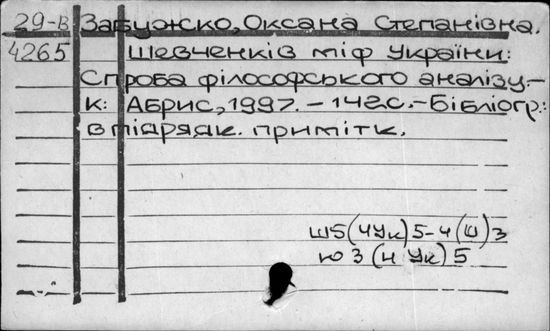 29-В Забужско, Оксана Степанівна.
4265 Шевченків міф України:
Спроба філософського аналізу.-
К: Абрис, 1997. - 142с. - Бібліогр.:
в підрядк. примітк.
Ш5(4Ук)5-4(Ш)3
Ю3(4Ук)5